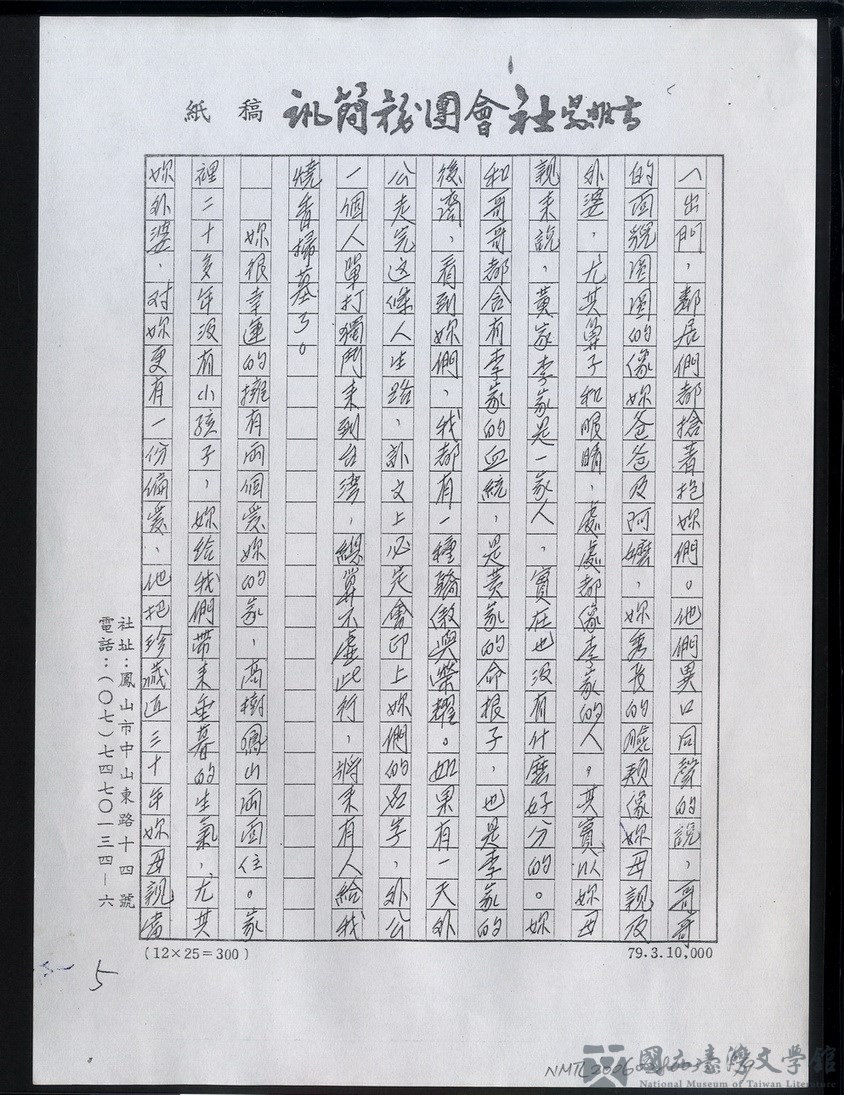 吳姓吉社會團務簡訊 稿紙
一出門，鄰居們都搶著抱妳們。他們異口同聲的說，哥哥
的面貌圓圓的像妳爸爸及阿嬤，妳秀長的臉頰像妳母親及
外婆，尤其鼻子和眼睛，處處都像李家的人。其實以妳母
親來說，黃家李家是一家人，實在也沒有什麼好分的。妳
和哥哥都含有李家的血統，是黃家的命根子，也是李家的
後裔，看到妳們，我都有一種驕傲與榮耀。如果有一天外
公走完这條人生路，訃文上必定會印上妳們的名字，外公
一個人單打獨鬥來到台灣，總算不虛此行，將來有人給我
燒香掃墓了。
妳很幸運的擁有兩個愛妳的家，高樹鳳山兩面住。家
裡二十多年沒有小孩子，妳給我們帶來垂暮的生氣，尤其
妳外婆，对妳更有一份偏愛，他把珍藏近三十年妳母親當
社址：鳳山市中山東路十四號
電話：（〇七）七四七〇一三四－六
(12×25＝300)
79.3.10,000
5
國立臺灣文學館
National Museum of Taiwan Literature